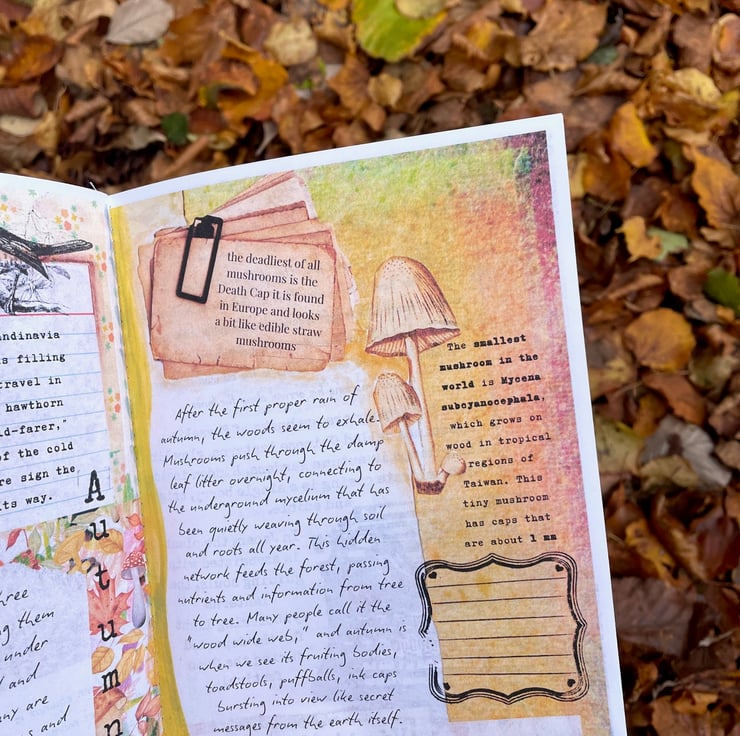 andinavia
s filling
travel in
hawthorn
ld-farer,"
of the cold
re sign the
its way.
Autumn
hree
ng them
under
and
ny are
s and
the deadliest of all
mushrooms is the
Death Cap it is found
in Europe and looks
a bit like edible straw
mushrooms
After the first proper rain of
autumn, the woods seem to exhale.
Mushrooms push through the damp
leaf litter overnight, connecting to
the underground mycelium that has
been quietly weaving through soil
and roots all year. This hidden
network feeds the forest, passing
nutrients and information from tree
to tree. Many people call it the
"wood wide web," and autumn is
when we see its fruiting bodies,
toadstools, puffballs, ink caps
bursting into view like secret
messages from the earth itself.
The smallest
mushroom in the
world is Mycena
subcyanocephala,
which grows on
wood in tropical
regions of
Taiwan. This
tiny mushroom
has caps that
are about 1 mm